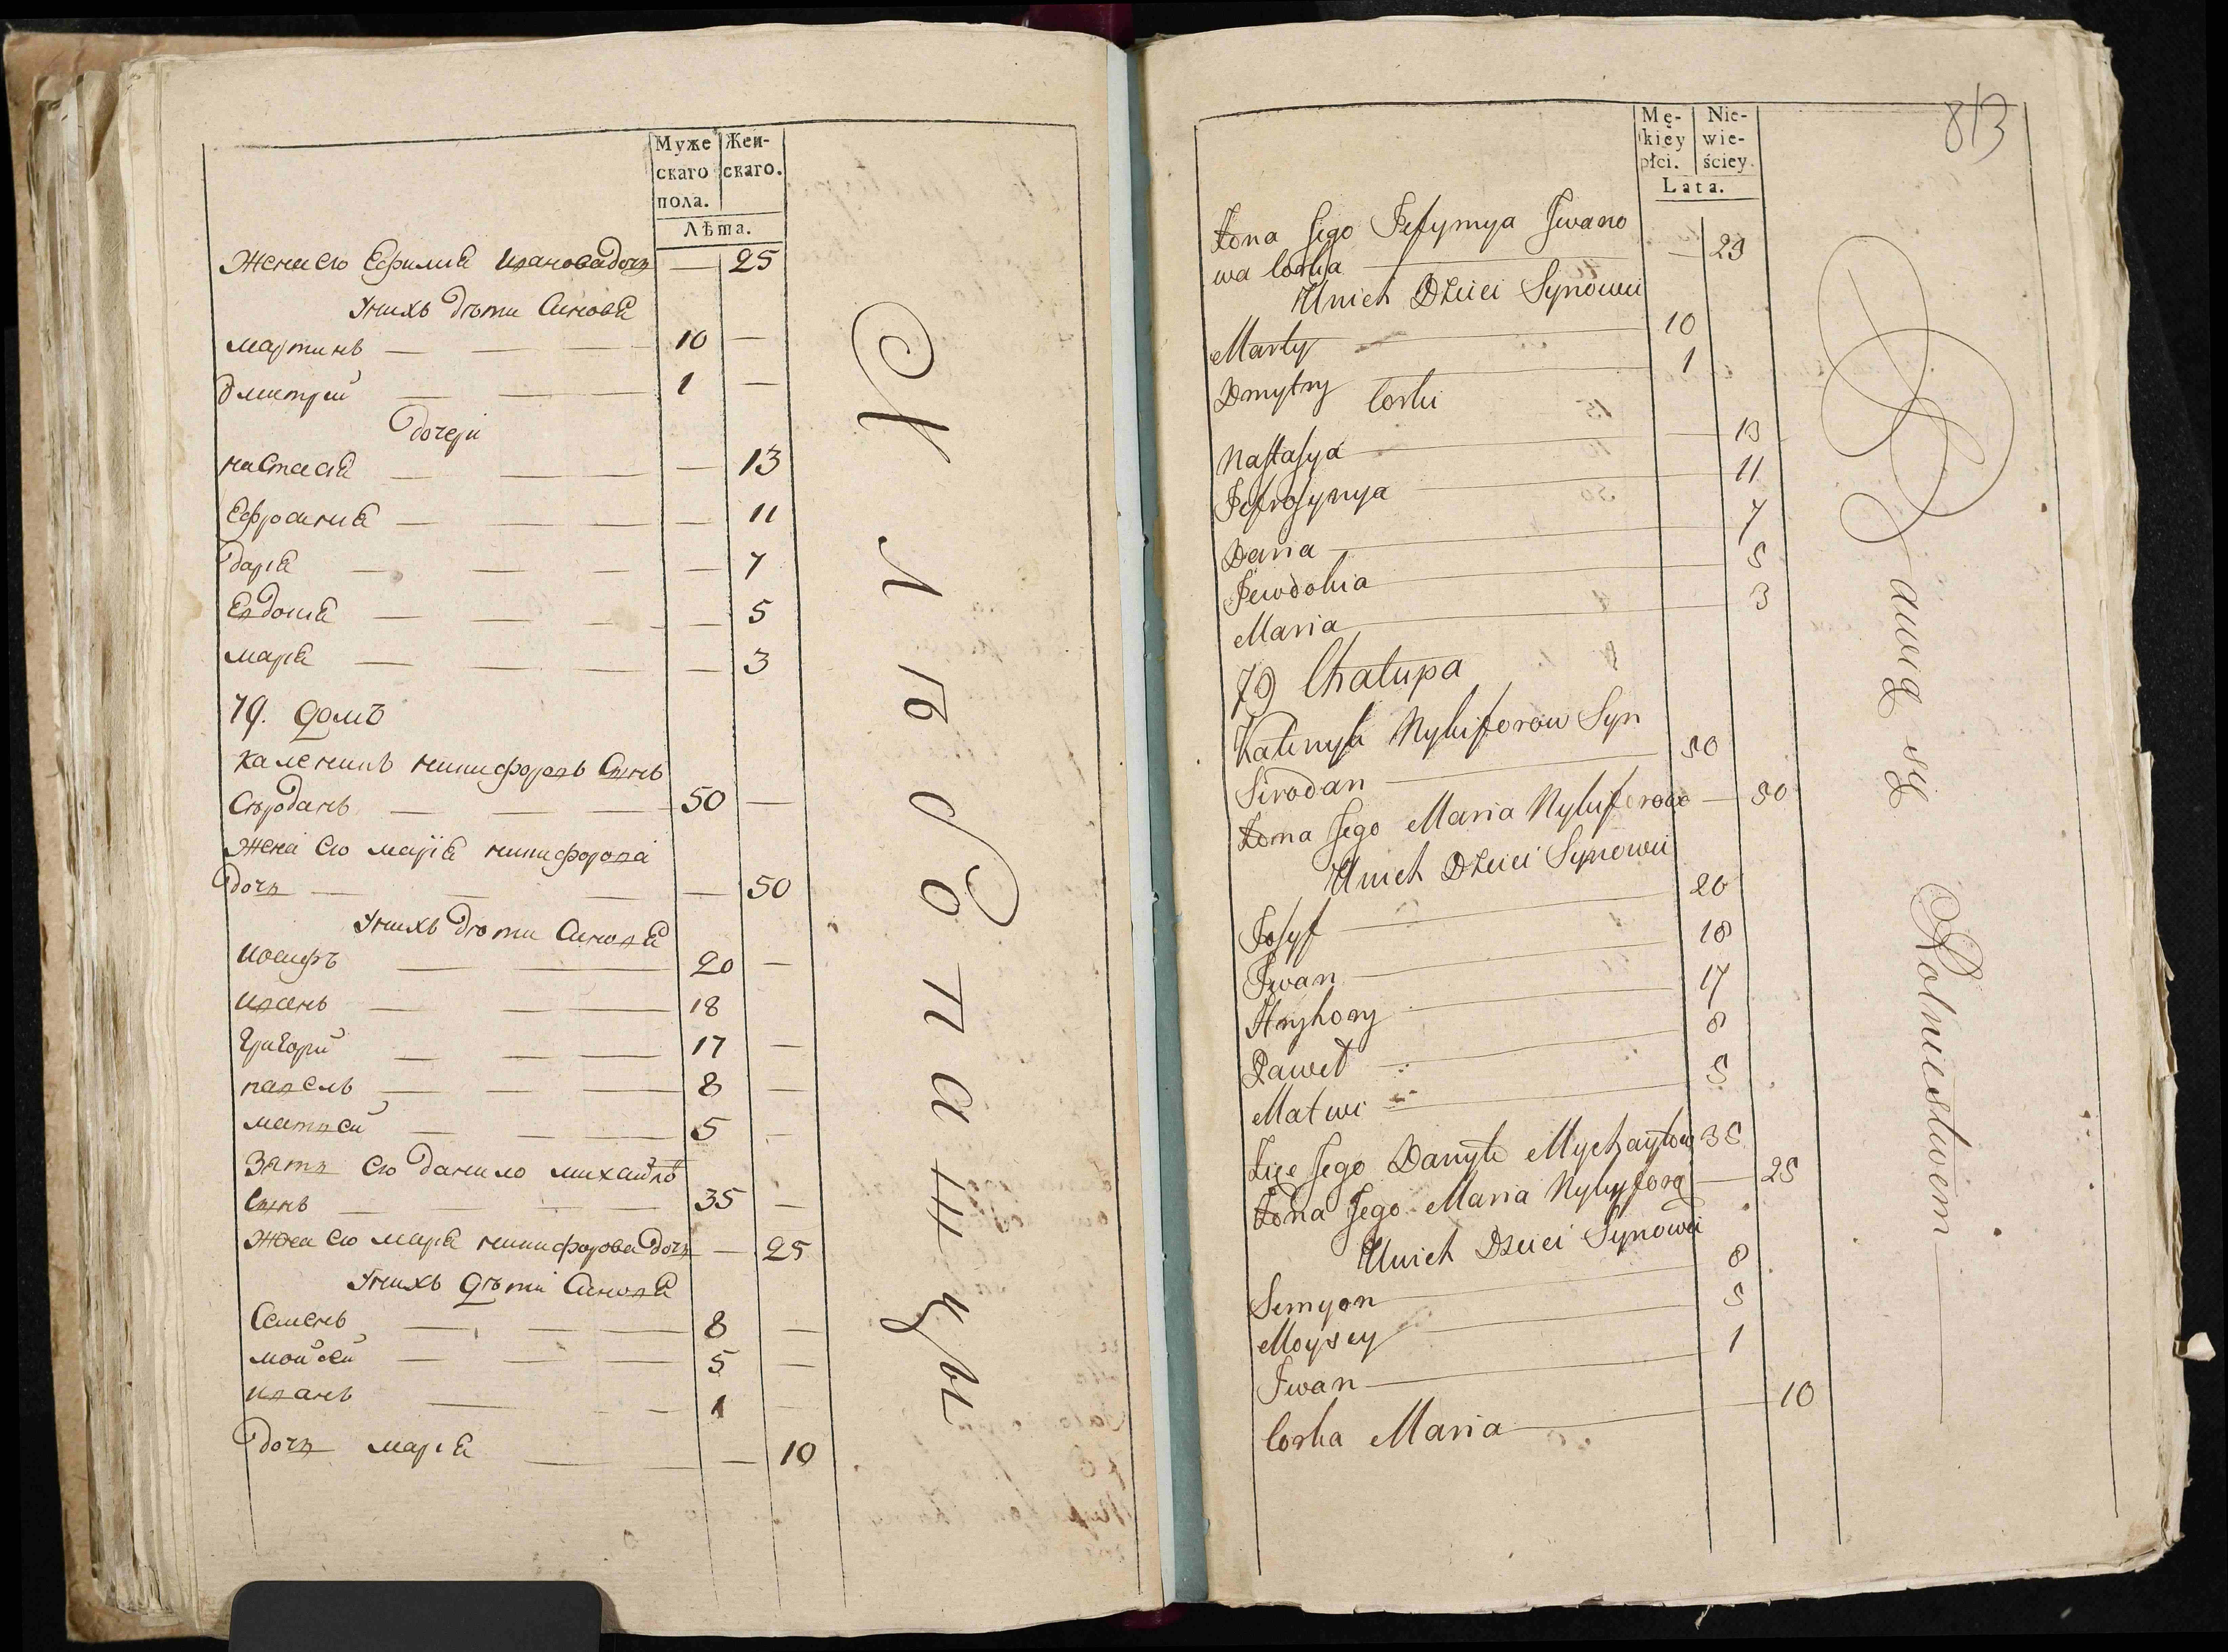 Муже Жен-
скаго скаго.
пола.
Лѣта.
Жена его Ефимиа Ивановадочь — 25
Унихъ дѣти Синовя
мартинъ — 10 —
дмитрий — 1 —
дочери
настасиа — 13
Ефросиниа — 11
дариа — 7
Евдокиа — 5
мариа — 3
79. домъ
каленикъ никифоровъ Синъ
Сѣроданъ — 50 —
Жена его мариа никифорова
дочь — 50
Унихъ дѣти Синовя
иосифъ — 20 —
иванъ — 18
григорий — 17 —
павелъ — 8 —
матвей — 5 —
Зять его данило михайловъ
Синъ — 35 —
Жена его мариа никифорова дочь — 25
Унихъ дѣти Синовя
Семенъ — 8 —
мойсей — 5 —
иванъ — 1 —
дочь мариа — 10
Хлѣбопашцы
813
Mę- Nie-
kiey wie-
płci. ściey.
Lata.
Żona Jego Jefymya Jwano
wa Corka — 29
Unich Dzieci Synowii
Marty — 10
Dmytry — 1
Corki
Nastasya — 13
Jefrosynya — 11
Daria — 7
Jewdokia — 5
Maria — 3
79 Chałupa
Kalinyk Nykiforow Syn
Sirodan — 50
Żona Jego Maria Nykiforowa — 50
Unich Dzieci Synowii
Josyf — 20
Jwan — 18
Hryhory — 17
Paweł — 8
Matwi — 5
Zięć Jego Danyło Mychayłow 35
Żona Jego Maria Nykyfora — 25
Unich Dzieci Synowii
Semyon — 8
Moysey — 5
Jwan — 1
Corka Maria — 10
Bawią się Rolnictwem